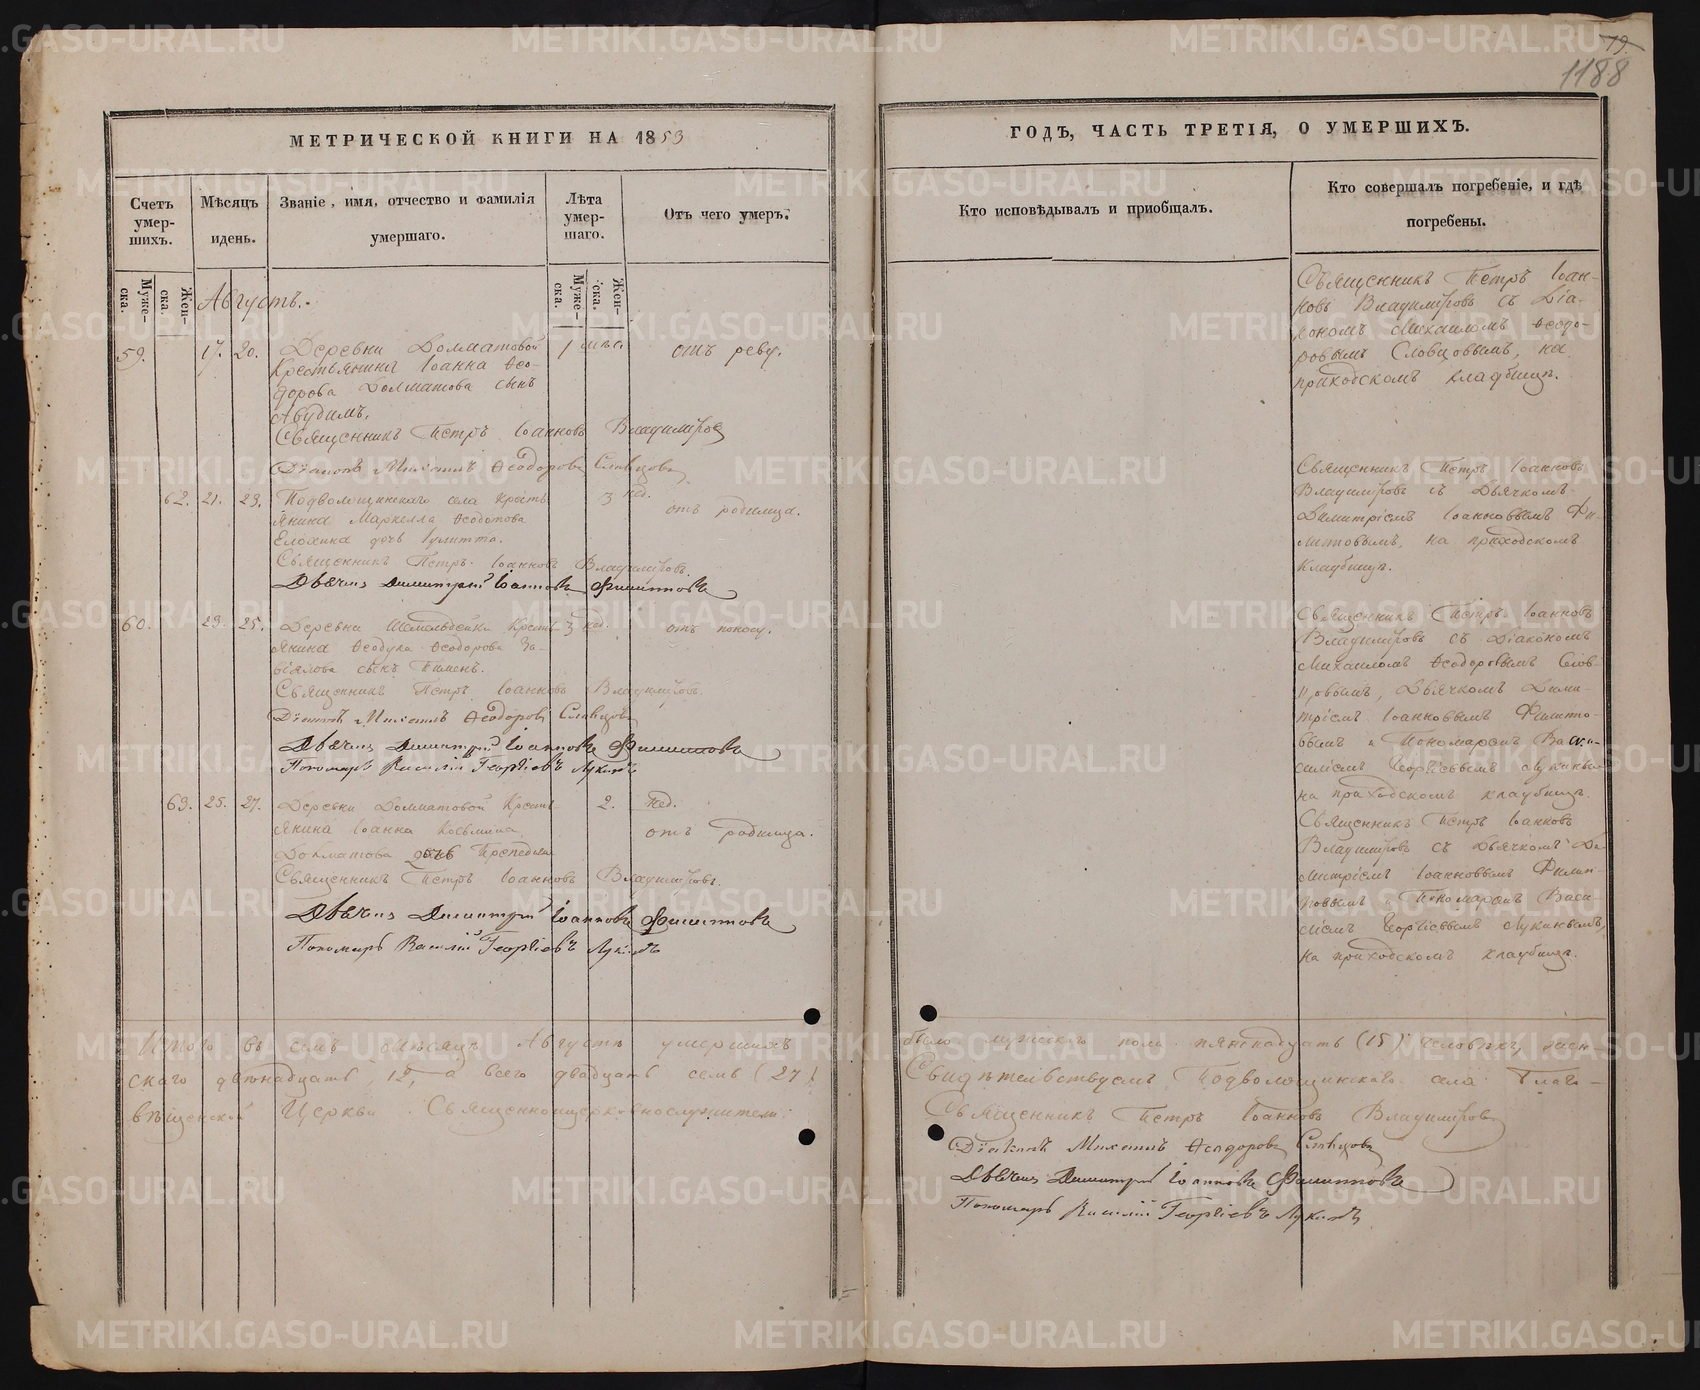 19.
1188
МЕТРИЧЕСКОЙ КНИГИ НА 1853
Счетъ умер-шихъ.
Мѣсяцъ идень.
Званіе, имя, отчество и фамилія умершаго.
Лѣта умер-шаго.
Отъ чего умеръ.
Муже-ска.
Жен-ска.
Муже-ска.
Жен-ска.
Августъ.
59. 17. 20. Деревни Долматовой 1 мѣс. отъ реву.
Крестьянина Іоанна Ѳео-
дорова Долматова сынъ
Авудимъ.
Священникъ Петръ Іоанновъ Владиміровъ
Діаконъ Михаилъ Ѳеодоровъ Словцовъ
62. 21. 23. Подволошинскаго села Кресть- 3 нед. отъ родимца.
янина Маркелла Ѳедотова
Елохина дочь Іулитта.
Священникъ Петръ Іоанновъ Владиміровъ.
Дьячекъ Димитрій Іоанновъ Филитовъ
60. 23. 25. Деревни Кресть- 3 нед. отъ поносу.
янина Ѳеодула Ѳеодорова За-
віялова сынъ Пименъ.
Священникъ Петръ Іоанновъ Владиміровъ.
Діаконъ Михаилъ Ѳеодоровъ Словцовъ
Дьячекъ Димитрій Іоанновъ Филитовъ
Пономарь Василій Георгіевъ Лукинъ
63. 25. 27. Деревни Долматовой Кресть- 2. Нед.
янина Іоанна Козьмина отъ родимца.
Долматова дочь
Священникъ Петръ Іоанновъ Владиміровъ.
Дьячекъ Димитрій Іоанновъ Филитовъ
Пономарь Василій Георгіевъ Лукинъ
Итого въ семъ мѣсяцѣ Августѣ умершихъ
скаго двѣнадцать, 12, а всего двадцать семь (27)
вѣщенской Церкви Священноцерковнослужители:
ГОДЪ, ЧАСТЬ ТРЕТІЯ, О УМЕРШИХЪ.
Кто исповѣдывалъ и приобщалъ.
Кто совершалъ погребеніе, и гдѣ погребены.
Священникъ Петръ Іоан-
новъ Владиміровъ съ Діа-
кономъ Михаиломъ Ѳеодо-
ровымъ Словцовымъ, на
приходскомъ кладбищѣ.
Священникъ Петръ Іоанновъ
Владиміровъ съ Дьячкомъ
Димитріемъ Іоанновымъ Фи-
литовымъ, на приходскомъ
кладбищѣ.
Священникъ Петръ Іоанновъ
Владиміровъ съ Діакономъ
Михаиломъ Ѳеодоровымъ Слов-
цовымъ, Дьячкомъ Дими-
тріемъ Іоанновымъ Филито-
вымъ и Пономаремъ Васи-
ліемъ Георгіевымъ Лукинымъ
на приходскомъ кладбищѣ.
Священникъ Петръ Іоанновъ
Владиміровъ съ Дьячкомъ Ди-
митріемъ Іоанновымъ Филит-
овымъ и Пономаремъ Васи-
ліемъ Георгіевымъ Лукинымъ,
на приходскомъ кладбищѣ.
было мужеска пола пятнадцать (15) человѣкъ, жен-
Свидѣтельствуемъ, Подволошинскаго села Благо-
Священникъ Петръ Іоанновъ Владиміровъ
Діаконъ Михаилъ Ѳеодоровъ Словцовъ
Дьячекъ Димитрій Іоанновъ Филитовъ
Пономарь Василій Георгіевъ Лукинъ
METRIKI.GASO-URAL.RU